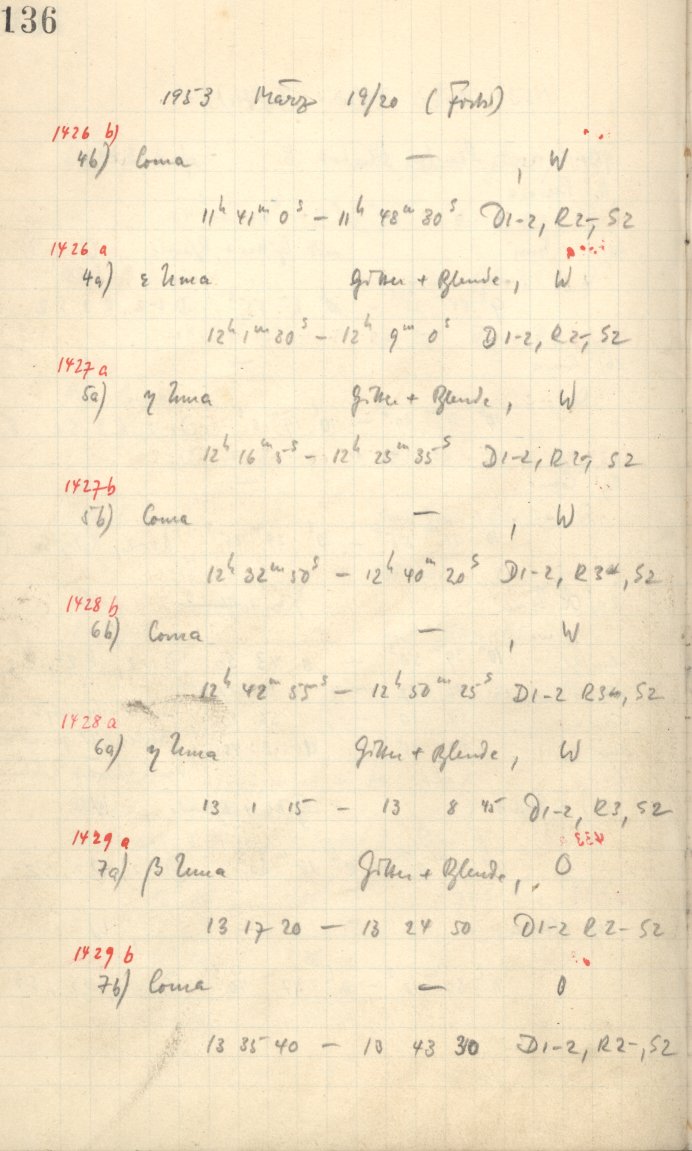 136
1953 März 19/20 (Forts)
1426 b)
4b) Coma — , W
11h 41m 0s – 11h 48m 30s D1-2, R2-, S2
1426 a
4a) ε Uma Gitter + Blende, W
12h 1m 30s – 12h 9m 0s D1-2, R2-, S2
1427a
5a) η Uma Gitter + Blende, W
12h 16m 5s – 12h 23m 35s D1-2, R2-, S2
1427b
5b) Coma — , W
12h 32m 50s – 12h 40m 20s D1-2, R3, S2
1428 b
6b) Coma — , W
12h 42m 55s – 12h 50m 25s D1-2 R3, S2
1428 a
6a) η Uma Gitter + Blende, W
13 1 15 – 13 8 45 D1-2, R3, S2
1429 a
7a) β Uma Gitter + Blende, O
13 17 20 – 13 24 50 D1-2 R2- S2
1429 b
7b) Coma — O
13 35 40 – 13 43 30 D1-2, R2-, S2